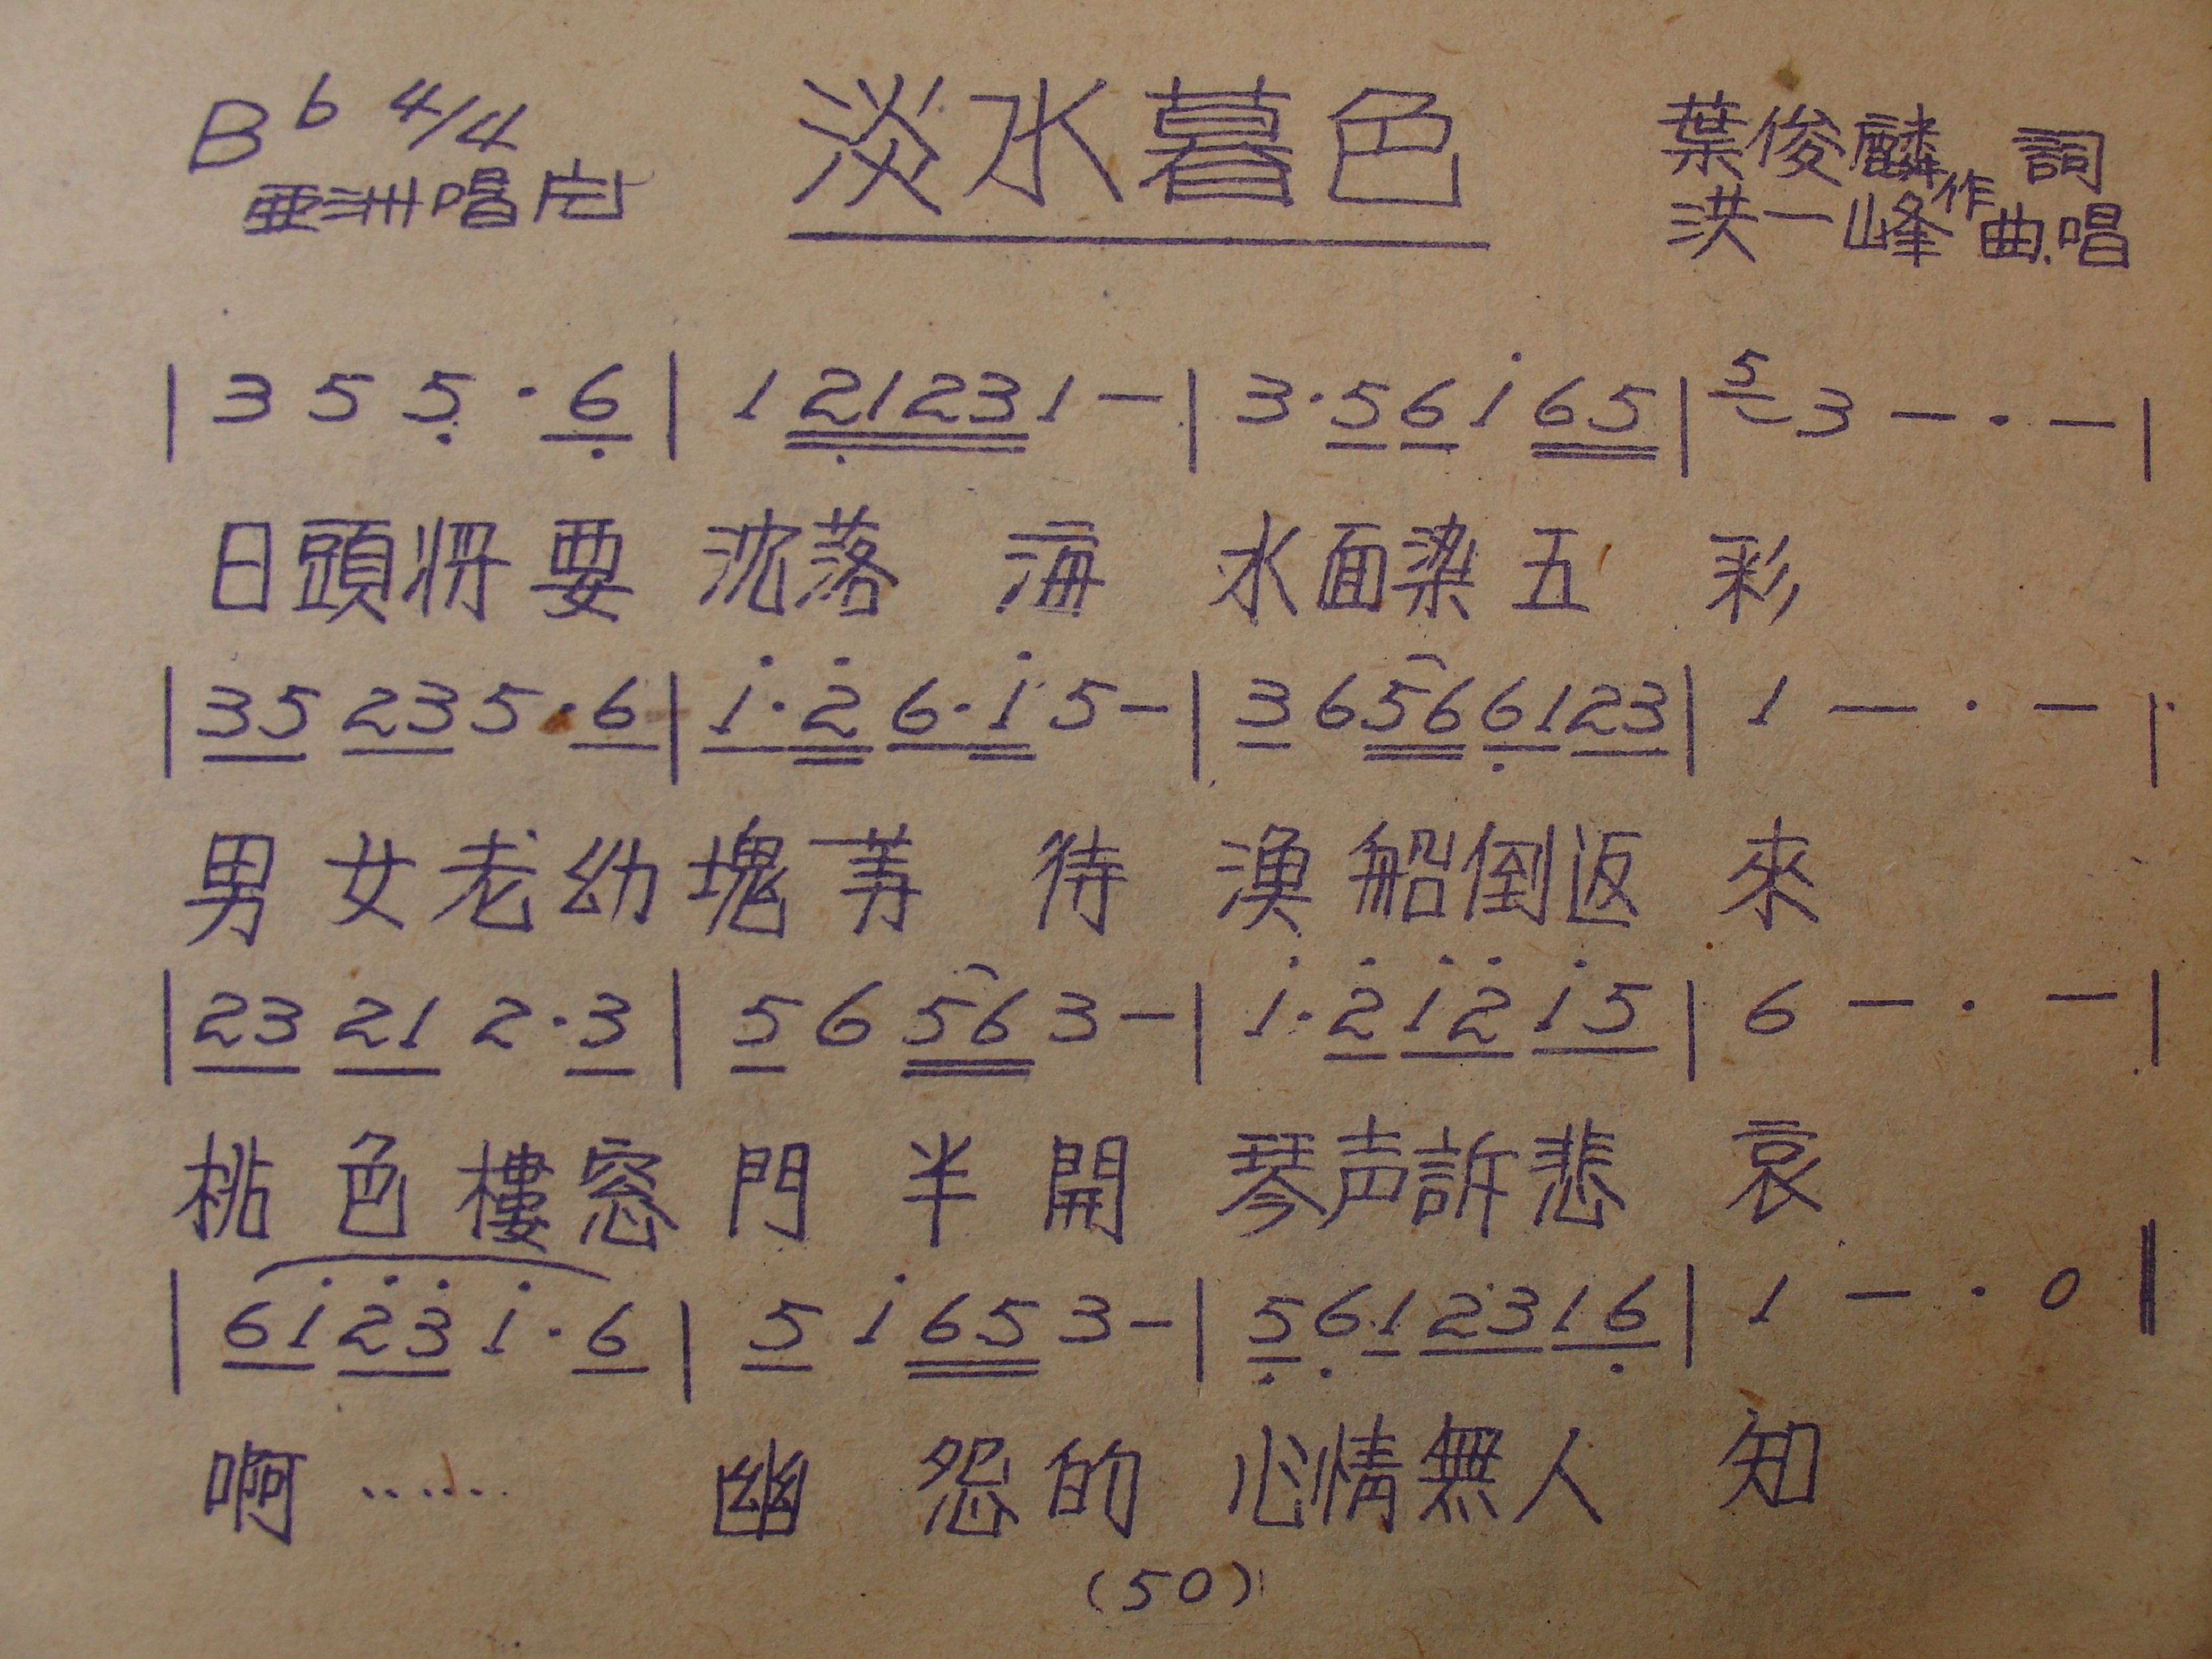 B♭ 4/4 淡水暮色 葉俊麟 詞
亜洲唱片 洪一峰作曲.唱
| 3 5 5̣ · 6̣ | 1 2̣1231 — | 3·56i̇65 | 5 3 — · — |
日頭将要 沈落 海 水面染五 彩
| 35 235·6 | i̇·2̇ 6·i̇ 5— | 3 656 6̣123 | 1 — · — |
男女老幼 塊 等 待 漁船倒返 來
| 23 21 2·3 | 5 6 56 3— | i̇·2̇i̇2̇ i̇5 | 6 — · — |
桃色樓窓 門 半 開 琴声訴悲 哀
| 6i̇2̇3̇ i̇·6 | 5 i̇ 65 3— | 5̣6̣1 2316̣ | 1 — · 0 ‖
啊…… 幽 怨的 心情無人 知
(50)